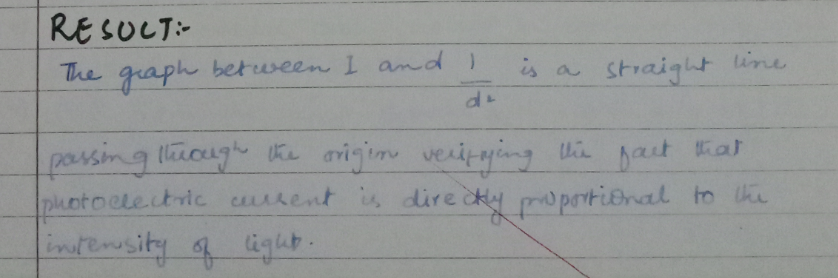 RESULT:-
The graph between I and 1/d² is a straight line
passing through the origin verifying the fact that
photoelectric current is directly proportional to the
intensity of light.